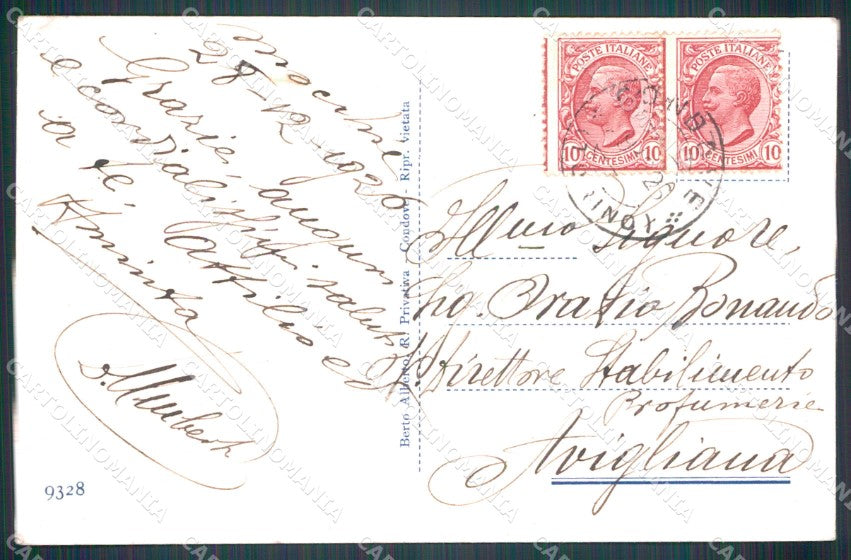 Mocchie
28-12-1920
Grazie, auguri
e cordialissimi saluti
a te, Attilio ed
Aminta
Umberto
9328
Berto Alberto, R. Privativa - Condove - Ripr. vietata
POSTE ITALIANE
10 CENTESIMI 10
POSTE ITALIANE
10 CENTESIMI 10
Ill.mo Signore,
Orazio Bonaudo
Direttore Stabilimento
Profumerie
Avigliana
CARTOLINOMANIA